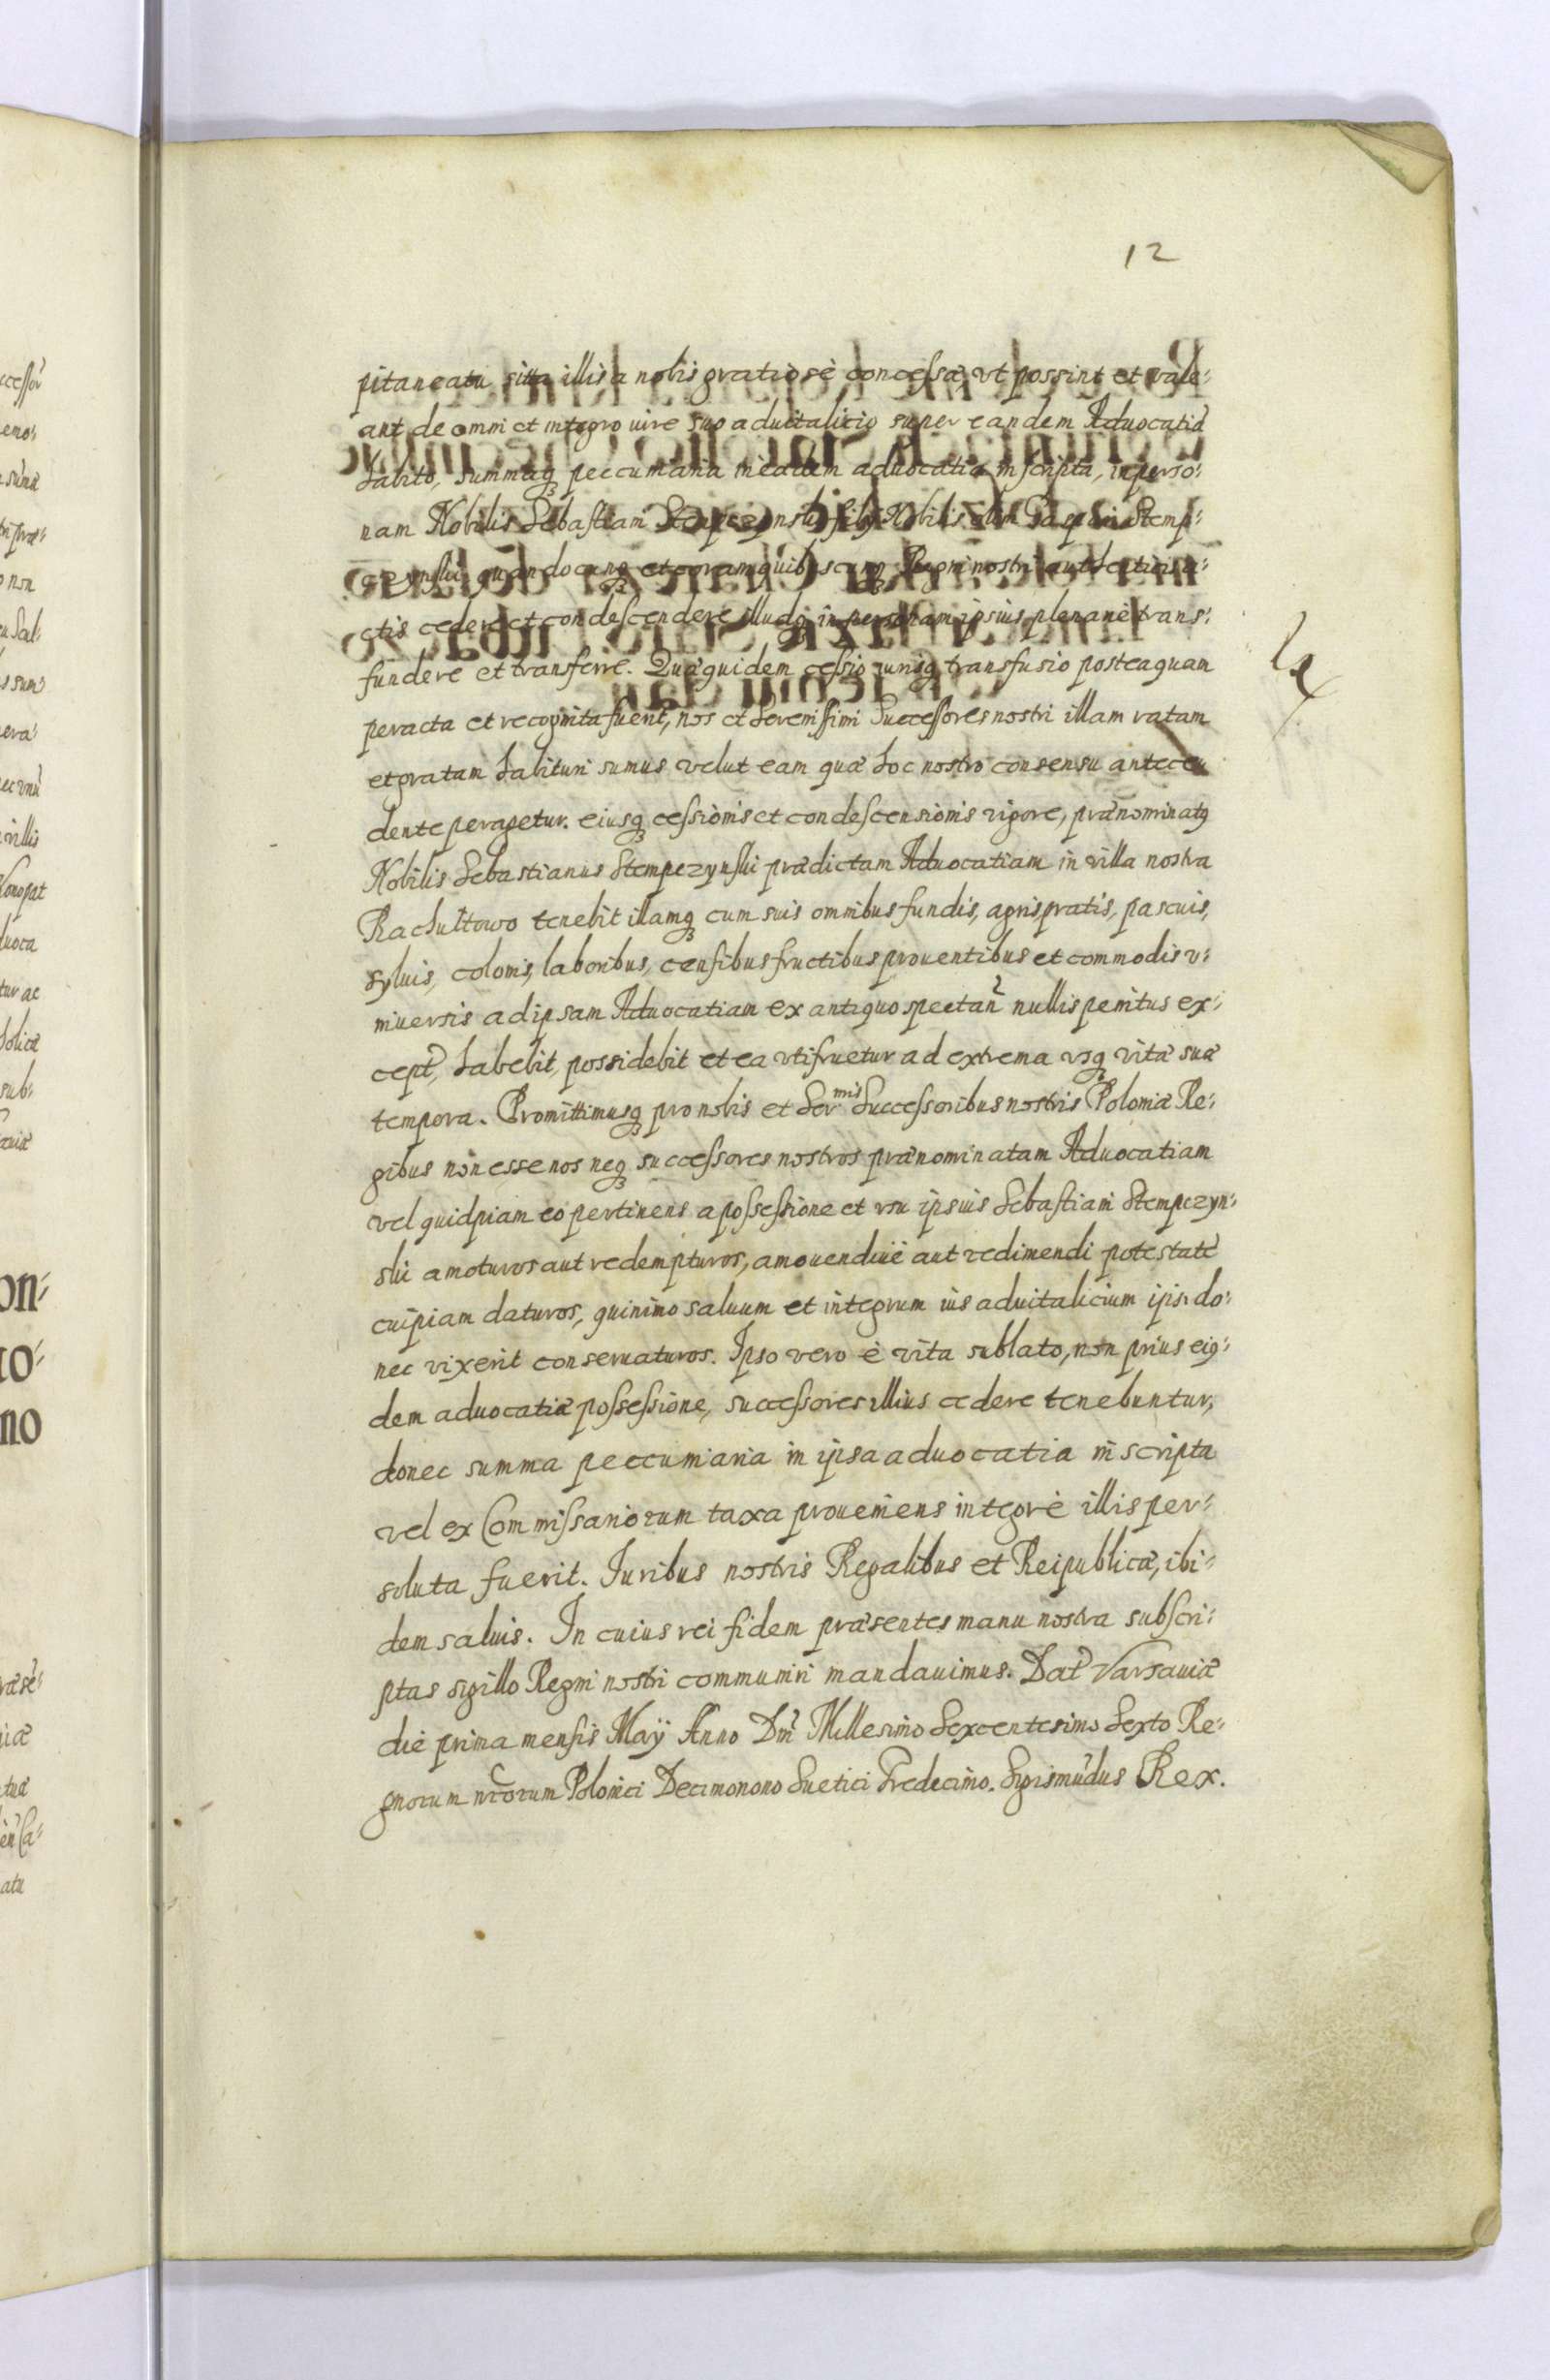 12
pitaneatu sitta illis a nobis gratiosè concessa vt possint et vale:
ant de omni et integro iure suo aduitalicio super eandem Aduocatiã
habito, summaq; peccuniaria in eadem aduocatia inscripta, in perso:
nam Nobilis Sebastiani Stempczynski filij Nobilis olim Gaspari Stemp:
czynski quandocunq; et coram quibuscunq; Regni nostri authenticis a:
ctis cedere et condescendere illudq; in personam ipsius plenariè trans:
fundere et transferre. Quæ quidem cessio iurisq; transfusio posteaquam
peracta et recognita fuerit, nos et Serenissimi Successores nostri illam ratam
et gratam habituri sumus velut eam quæ hoc nostro consensu antece
dente peragetur. eiusq; cessionis et condescensionis vigore, prænominatus
Nobilis Sebastianus Stempczynski prædictam Aduocatiam in villa nostra
Rachultowo tenebit illamq; cum suis omnibus fundis, agris pratis, pascuis,
syluis, colonis, laboribus, censibus fructibus prouentibus et commodis v:
niuersis ad ipsam Aduocatiam ex antiquo spectañ nullis penitus ex:
cept, habebit, possidebit et ea vtifruetur ad extrema vsq; vitæ suæ
tempora. Promittimusq; pro nobis et Ser^mis Successoribus nostris Poloniæ Re:
gibus non esse nos neq; successores nostros prænominatam Aduocatiam
vel quidpiam eo pertinens a possessione et vsu ipsius Sebastiani Stempczyn:
ski amoturos aut redempturos, amouendiuè aut redimendi potestatẽ
cuipiam daturos, quinimo saluum et integrum ius aduitalicium ipsi do:
nec vixerit conseruaturos. Ipso vero è vita sublato, non prius eius:
dem aduocatiæ possessione, successores illius cedere tenebuntur,
donec summa peccuniaria in ipsa aduocatia inscripta
vel ex Commissariorum taxa proueniens integrè illis per:
soluta fuerit. Iuribus nostris Regalibus et Reipublicæ, ibi:
dem saluis. In cuius rei fidem præsentes manu nostra subscri:
ptas sigillo Regni nostri communiri mandauimus. Dat Varsauiæ
die prima mensis Maÿ Anno Dm̃ Millesimo Sexcentesimo Sexto Re:
gnorum nrorum Polonici Decimonono Suetici Tredecimo. Sigismũdus Rex.